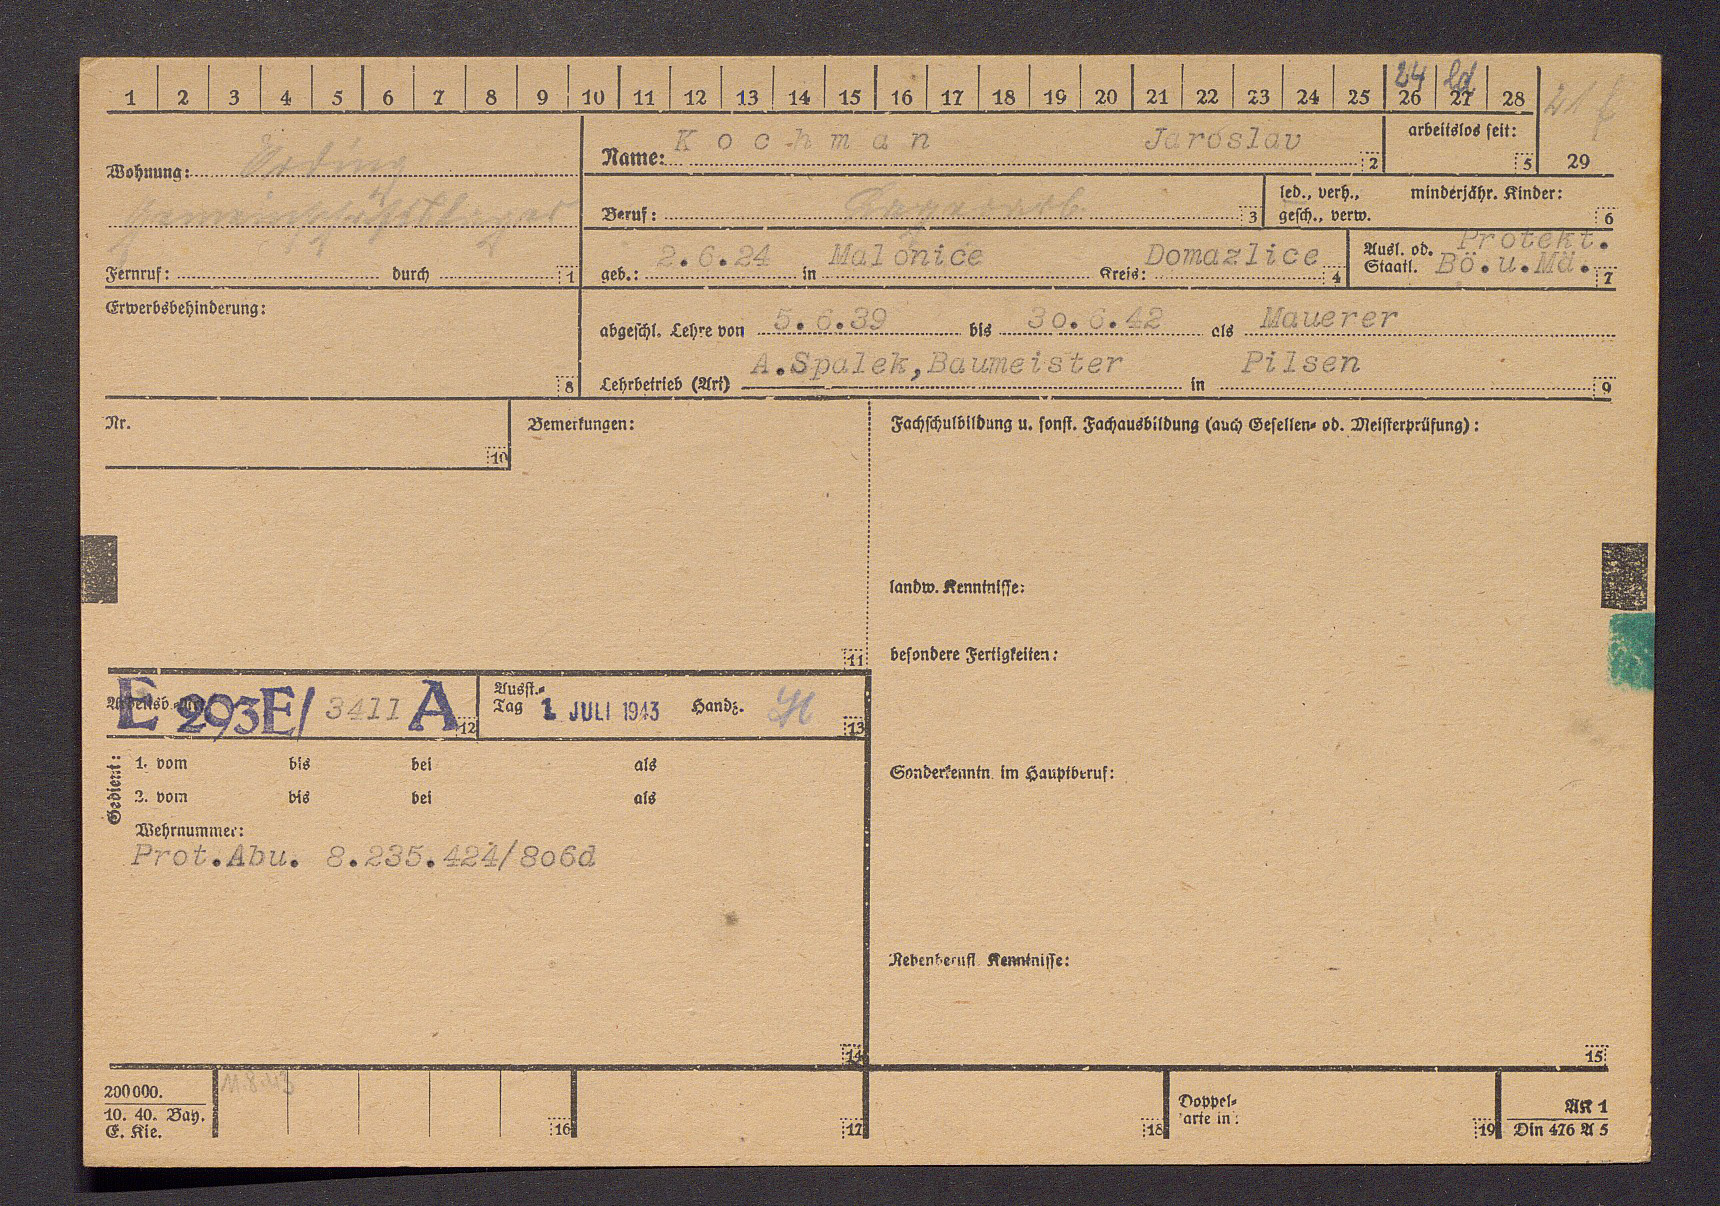 1 2 3 4 5 6 7 8 9 10 11 12 13 14 15 16 17 18 19 20 21 22 23 24 25 26 27 28
24 ld
21 f
29
Wohnung: Erding
Gemeinschaftslager
Fernruf: durch 1
Name: Kochman Jaroslav 2
arbeitslos seit: 5
Beruf: Lagerarb. 3
led., verh., minderjähr. Kinder:
gesch., verw. 6
geb.: 2.6.24 in Malonice Kreis: Domazlice 4
Ausl. od. Protekt.
Staatl. Bö.u.Mä. 7
Erwerbsbehinderung:
8
abgeschl. Lehre von 5.6.39 bis 30.6.42 als Mauerer
A.Spalek,Baumeister Pilsen
Lehrbetrieb (Art) in 9
Nr.
10
Bemerkungen:
11
Fachschulbildung u. sonst. Fachausbildung (auch Gesellen- od. Meisterprüfung):
landw. Kenntnisse:
besondere Fertigkeiten:
Sonderkenntn. im Hauptberuf:
Nebenberufl. Kenntnisse:
15
Arbeitsb.-Nr. E 293E/ 3411 A 12
Ausst.-
Tag 1. JULI 1943 Handz. 13
Gedient:
1. vom bis bei als
2. vom bis bei als
Wehrnummer:
Prot.Abu. 8.235.424/806d
14
200000.
10. 40. Bay.
E. Kie.
16
17
18
Doppel-
karte in:
19
AK 1
Din 476 A 5